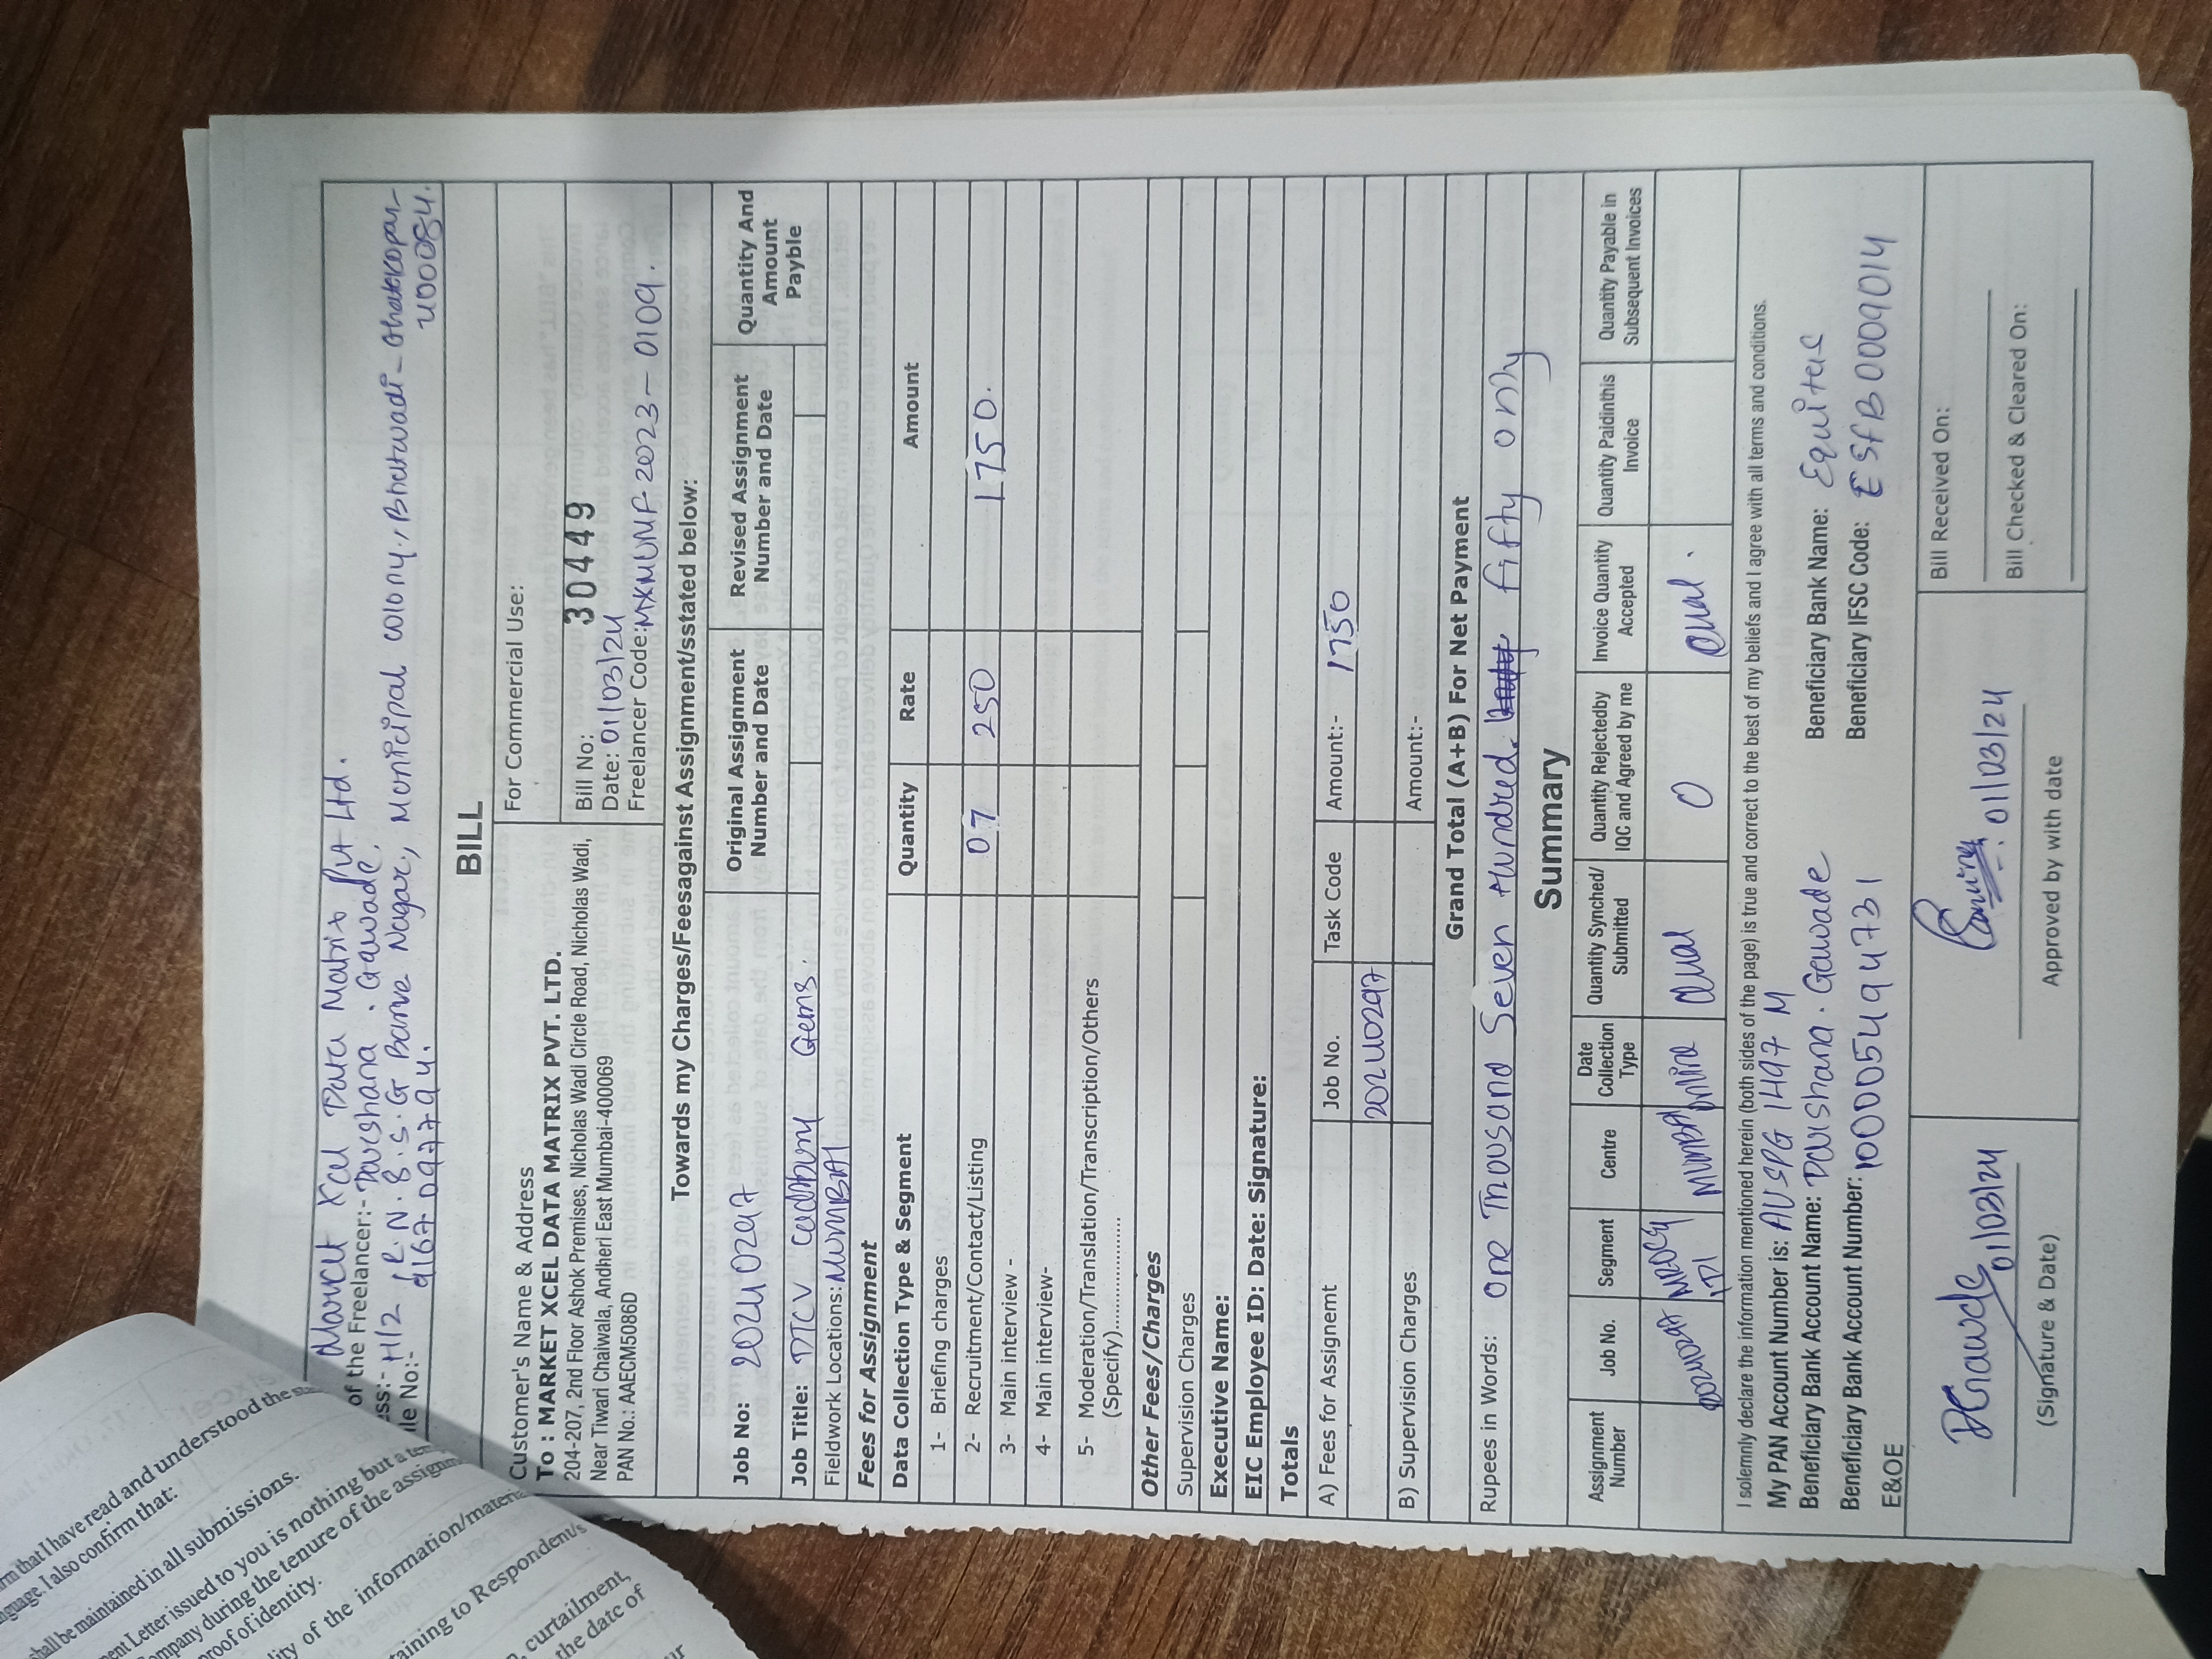 Market Xcel Data Matrix Pvt Ltd.
of the Freelancer:- Darshana . Gawade.
ess:- H12, R.N. 8. S.G Barve Nagar, Municipal colony, Bhatwadi - Ghatkopar-
400084.
ile No:- 9167709779 4.
BILL
Customer's Name & Address
To : MARKET XCEL DATA MATRIX PVT. LTD.
204-207, 2nd Floor Ashok Premises, Nicholas Wadi Circle Road, Nicholas Wadi,
Near Tiwari Chaiwala, Andheri East Mumbai-400069
PAN No.: AAECM5086D
For Commercial Use:
Bill No: 30449
Date: 01/03/24
Freelancer Code: MXMUMF2023-0109.
Towards my Charges/Feesagainst Assignment/sstated below:
Job No: 20240297
Original Assignment Number and Date
Revised Assignment Number and Date
Quantity And Amount Payble
Job Title: DTCV Cadbury Gems.
Fieldwork Locations: MUMBAI
Fees for Assignment
Data Collection Type & Segment Quantity Rate Amount
1- Briefing charges
2- Recruitment/Contact/Listing 07 250 1750.
3- Main interview -
4- Main interview-
5- Moderation/Translation/Transcription/Others
(Specify)........................
Other Fees/Charges
Supervision Charges
Executive Name:
EIC Employee ID: Date: Signature:
Totals
A) Fees for Assignemt Job No. Task Code Amount:- 1750
20240297
B) Supervision Charges Amount:-
Grand Total (A+B) For Net Payment
Rupees in Words: One Thousand Seven Hundred. fifty only
Summary
Assignment Number Job No. Segment Centre Date Collection Type Quantity Synched/ Submitted Quantity Rejectedby IQC and Agreed by me Invoice Quantity Accepted Quantity Paidinthis Invoice Quantity Payable in Subsequent Invoices
20240297 MUMBAI Qual 0 Qual.
I solemnly declare the information mentioned herein (both sides of the page) is true and correct to the best of my beliefs and I agree with all terms and conditions.
My PAN Account Number is: AUSPG 1497 M
Beneficiary Bank Account Name: Darshana . Gawade Beneficiary Bank Name: Equitas
Beneficiary Bank Account Number: 10005494731 Beneficiary IFSC Code: ESFB0009014
E&OE
01/03/24
(Signature & Date)
01/03/24
Approved by with date
Bill Received On:
Bill Checked & Cleared On:
rm that I have read and understood the
nguage. I also confirm that:
shall be maintained in all submissions.
ent Letter issued to you is nothing but a
ompany during the tenure of the
proof of identity.
lity of the information/
taining to Respondent/s
, curtailment,
the date of